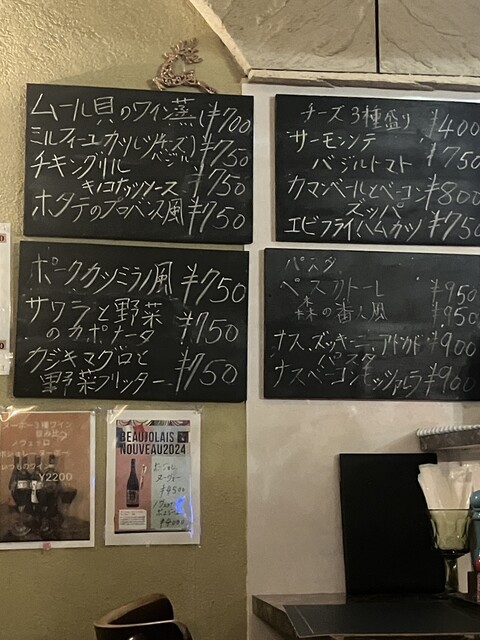 ムール貝のワイン蒸し ¥700
ミルフィーユカツレツ(チーズ)
バジル ¥750
チキングリル
キノコナッツソース ¥750
ホタテのプロバンス風 ¥750
チーズ3種盛り ¥400
サーモンソテ
バジルトマト ¥750
カマンベールとベーコン ¥800
ズッパ
エビフライハムカツ ¥750
ポークカツミラノ風 ¥750
サワラと野菜
のカポナータ ¥750
カジキマグロと
野菜フリッター ¥750
パスタ
ペスカトーレ ¥950
森の番人風 ¥950
ナス、ズッキーニ、アボカド ¥900
パスタ
ナスベーコンモッツァレラ ¥900
3種ワイン
飲み比べ
ノヴェッロ
いつものワイン
¥2200
BEAUJOLAIS
NOUVEAU2024
ボジョレー
ヌーヴォー
¥4500